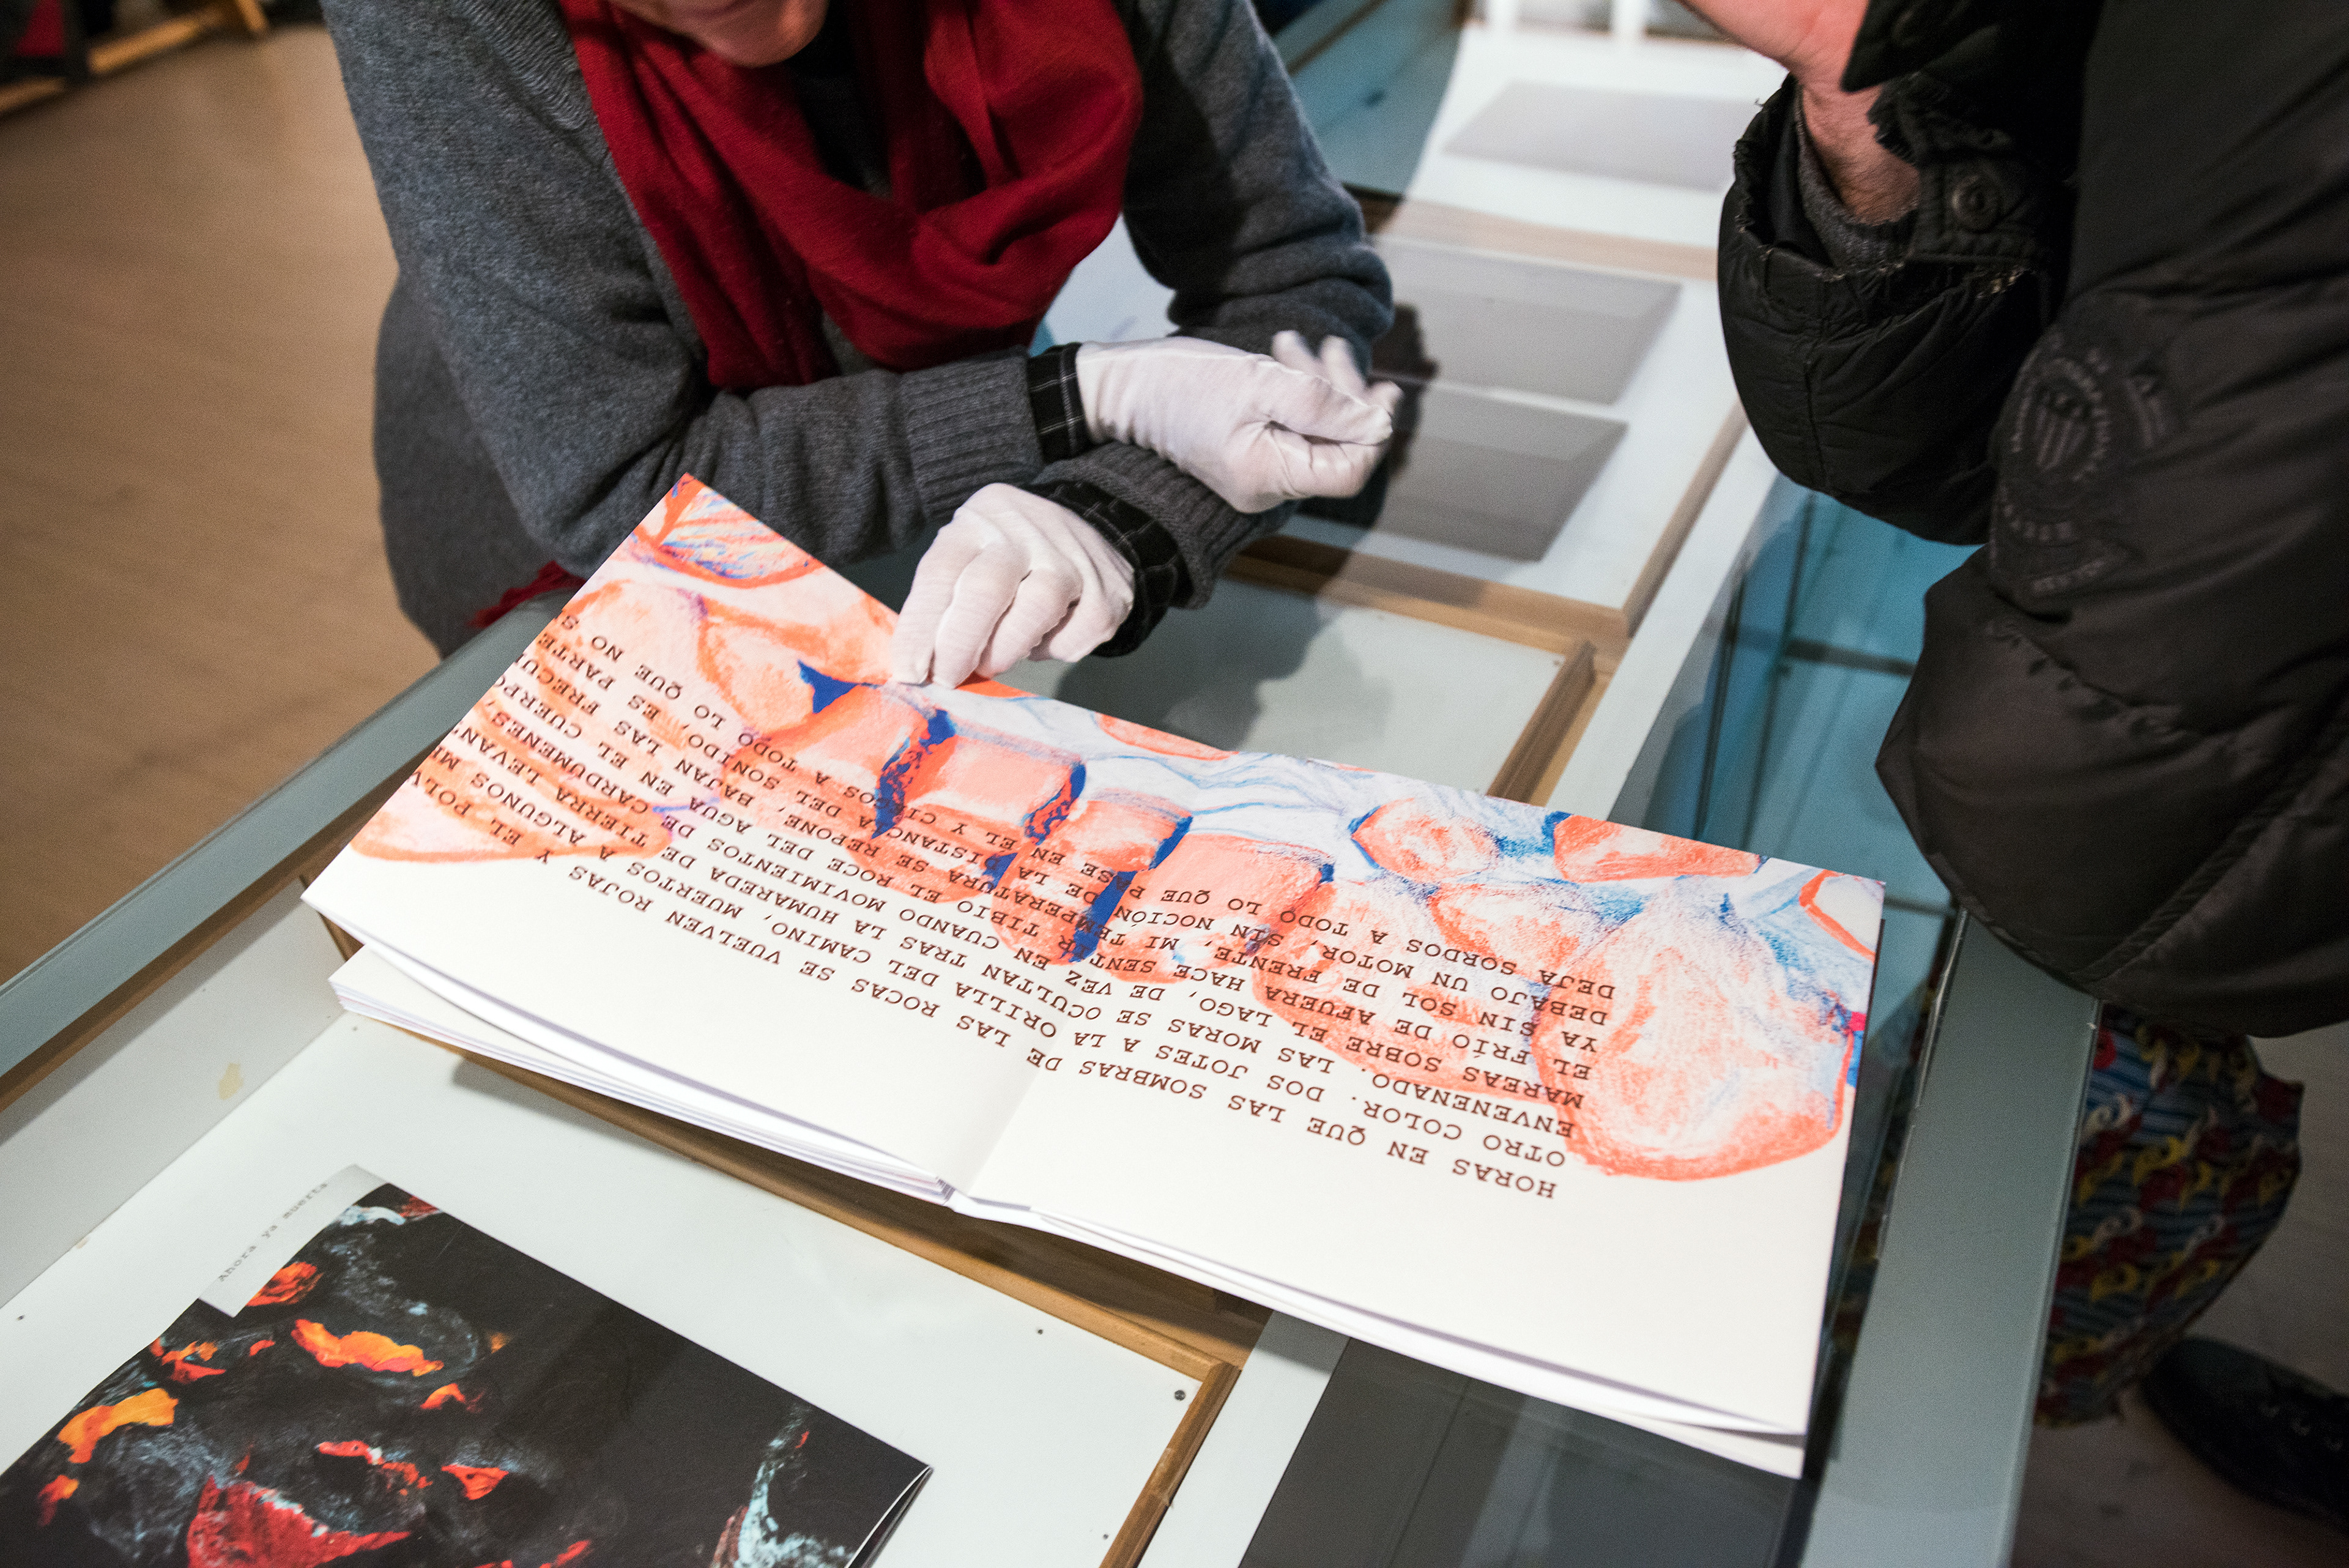 HORAS EN QUE LAS SOMBRAS DE LAS ROCAS SE VUELVEN ROJAS Y EL POLV
OTRO COLOR. DOS JOTES A LA ORILLA DEL CAMINO, MUERTOS A ALGUNOS
ENVENENADO. LAS MORAS SE OCULTAN TRAS LA HUMAREDA DE TIERRA LEVAN
MAREAS SOBRE EL LAGO, DE VEZ EN CUANDO MOVIMIENTOS DE CARDUMENES,
EL FRÍO DE AFUERA HACE SENTIR EL TIBIO ROCE DEL AGUA EN EL CUERPO
YA SIN SOL DE FRENTE, MI TEMPERATURA SE REPONE, BAJAN LAS FRECU
DEBAJO UN MOTOR, SIN NOCIÓN DE LA DISTANCIA DEL SONIDO, ES PARTE
DEJA SORDOS A TODO LO QUE PASE EN EL Y CIEGOS A TODO LO QUE NO S
Ahora ya muerta